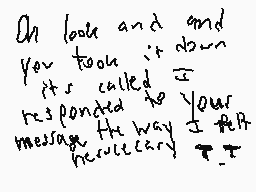 Oh look and and
you took it down
it's called I
responded to your
message the way I felt
nerscecary T_T